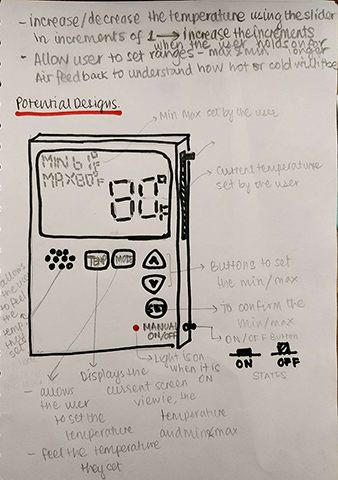 - increase/decrease the temperature using the slider
in increments of 1 → increase the increments
when the user holds on for
longer
- Allow user to set ranges - max & min
Air feedback to understand how hot or cold will the
Potential Designs.
Min Max set by the user
MIN 61°F
MAX 80°F
80°F
Current temperature
set by the user
TEMP
MODE
SET
Buttons to set
the min/max
To confirm the
min/max
MANUAL
ON/OFF
ON/OFF Button
ON
OFF
STATES
Light is on
when it is
ON
allows
the user
to feel
the
temp
that
set
Displays the
current screen
view ie, the
temperature
and min & max
- allows
the user
to set the
temperature
- feel the temperature
they set